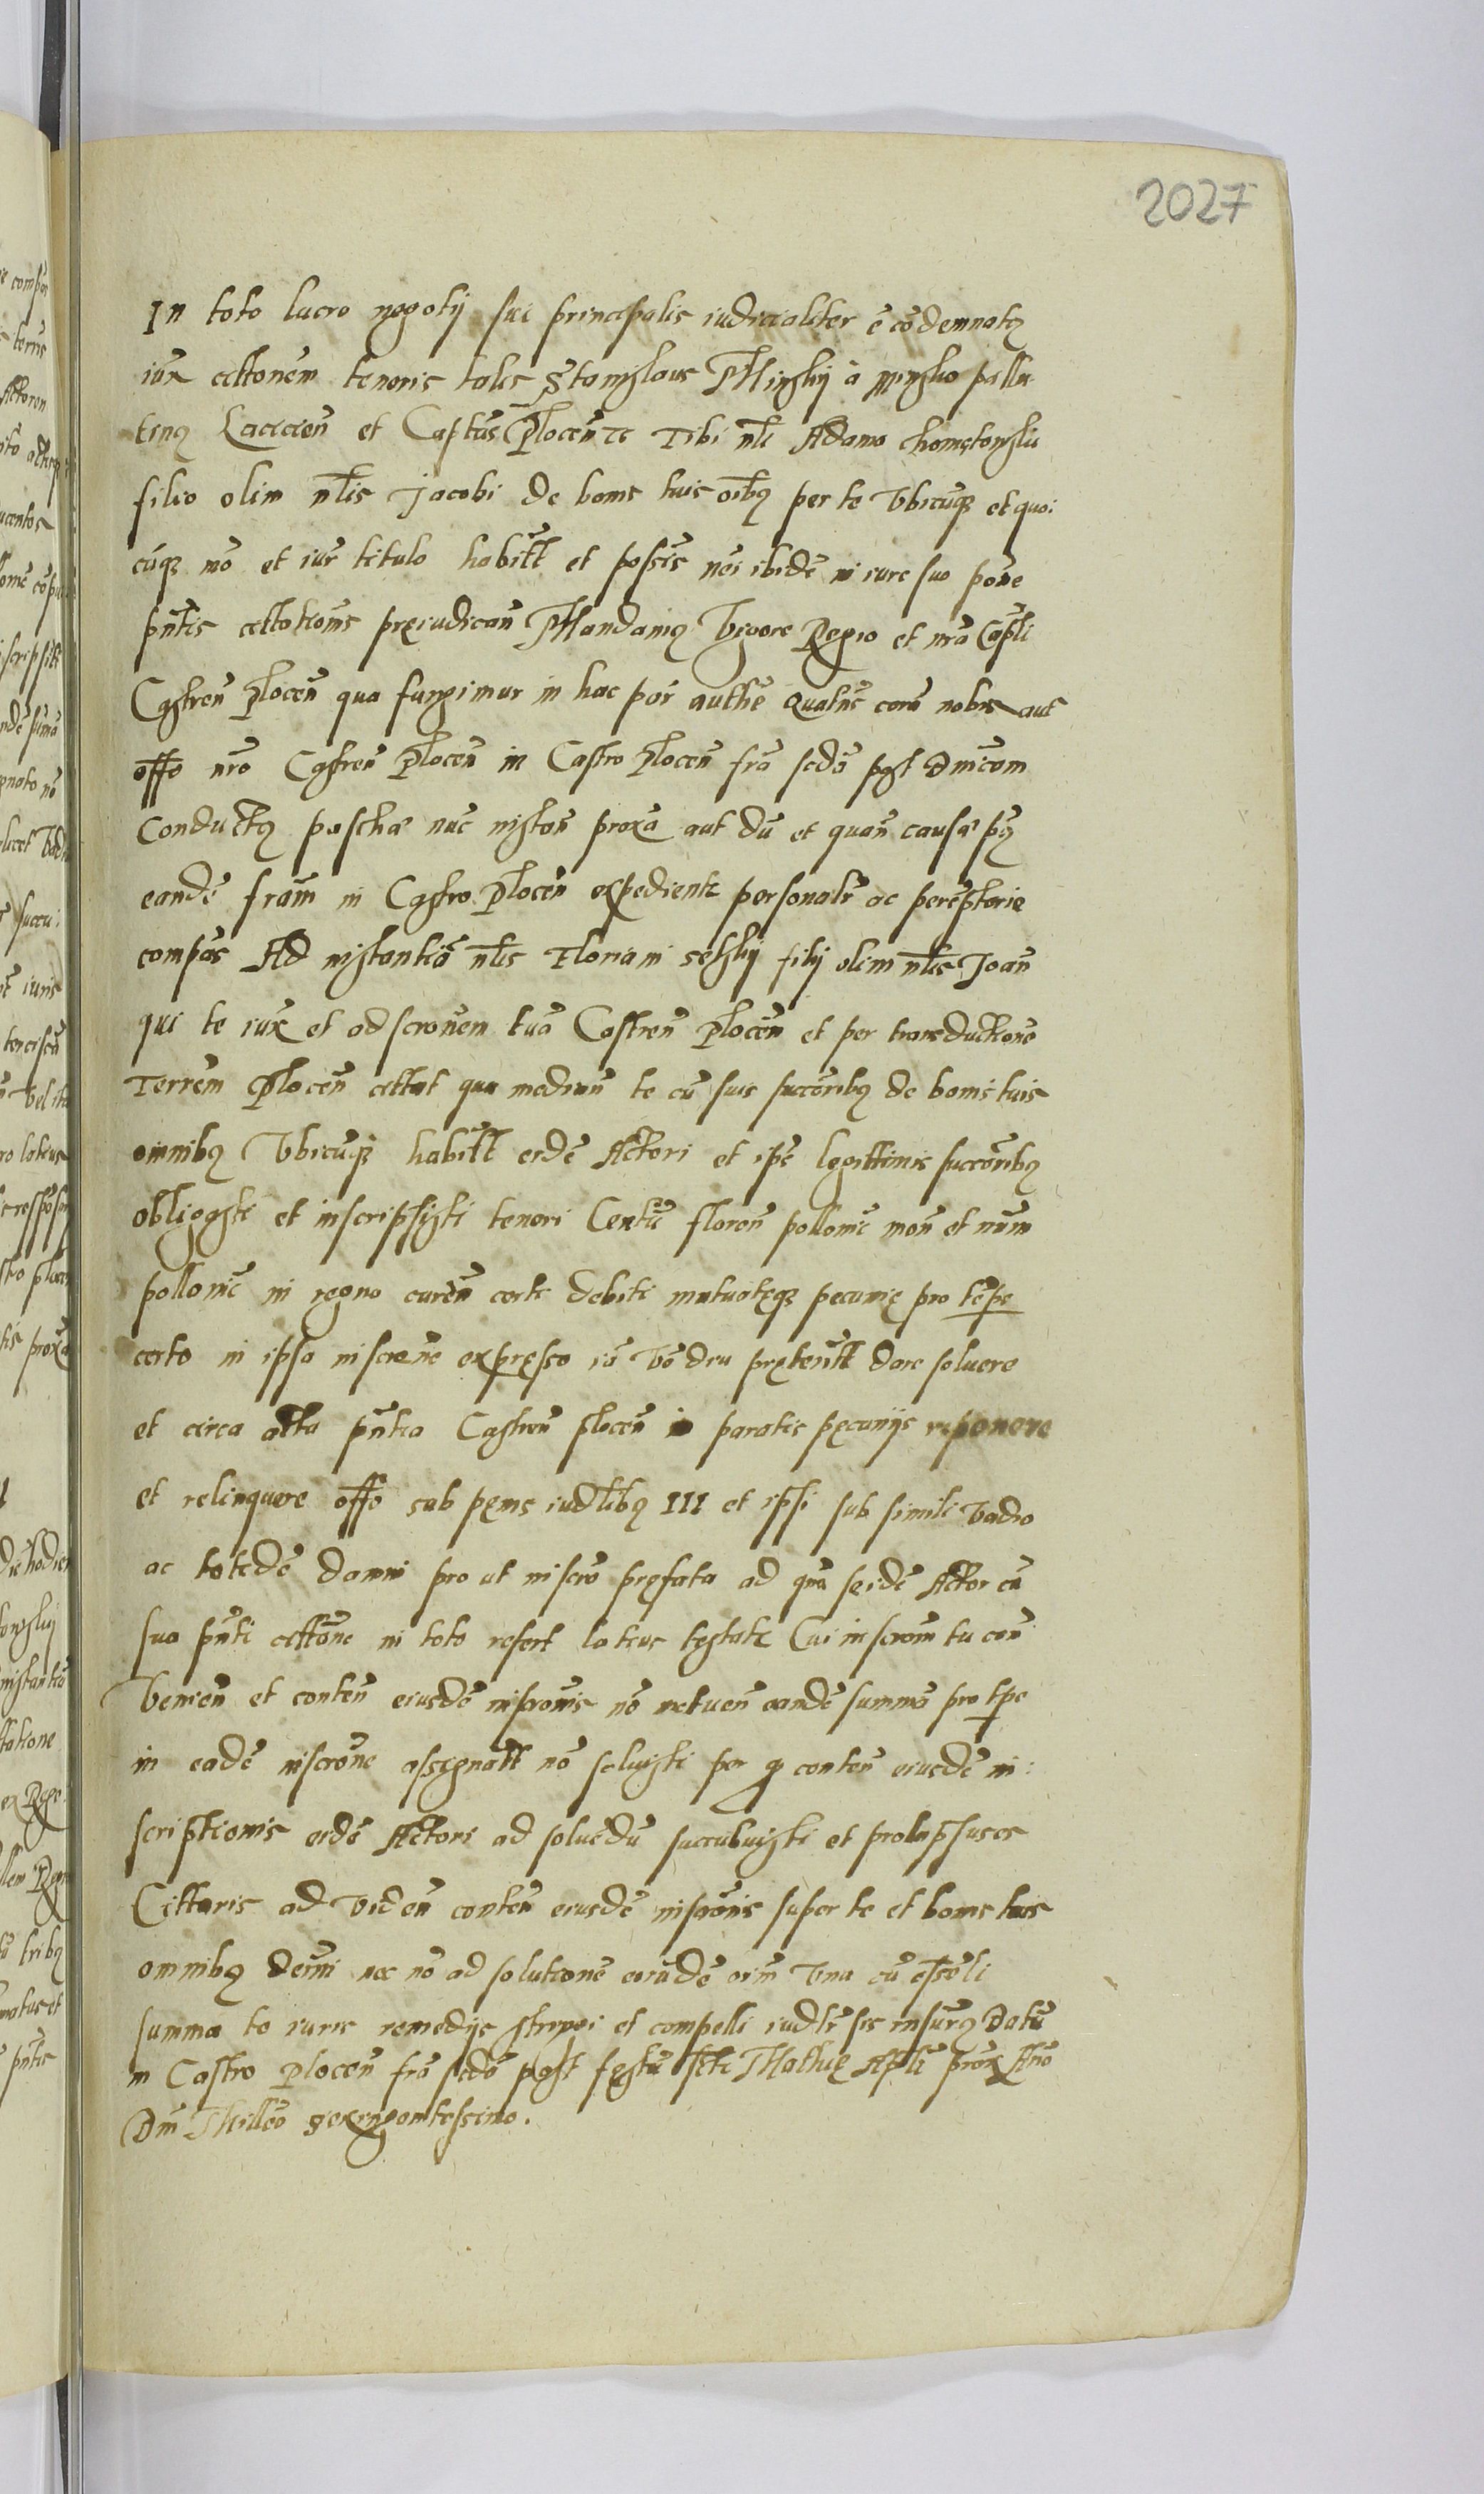 2027
In toto lucro negotij sui principalis iudicialiter ē cōdemnatꝯ
iux cittonēm tenoris talis Stanislaus Minskij à minsko palla
tinꝯ Lacicień et Captūs Płoceñ Tibi nłi Adamo chomętowski
filio olim nłis Jacobi de bonis tuis oībꝯ per te Vbicūqꝫ et quo:
cūqꝫ mō et iur titulo habitł et possīs nēi ibidē in iure suo pōne
pn̄tis cittationīs pręiudicañ Mandamꝯ Vigore Regio et nr̄a Capłi
Castreñ Płoceñ qua fungimur in hac pār authē Quatn̄s corā nobis aut
offō nr̄o Castreñ Płoceñ in Castro Płoceñ fr̄a scdā post dnīcam
Conductꝯ paschæ nūc instoñ proxā aut dū et quañ causæ pꝯ
eandē fr̄am in Castro Płoceñ expedientr personalr̄ ac perēptorie
compās Ad instantiā nłis Floriani selskij filij olim nłis Joañ
qui te iux et ad scrōnem tuā Castreñ Płoceñ et per transductionē
Terrēm Płoceñ cittat qua mediañ te cū suis succōribꝯ de bonis tuis
omnibꝯ Vbicūqꝫ habitł eidē Actori et ipē legittimis succōribꝯ
obligasti et inscripsisti teneri Centū floreñ pollonīc moñ et nūm
pollonīc in regno cureñ certi debiti mutuatęqꝫ pecunię pro tēpe
certo in ipsa inscrōne expresso iā dare soluere
et circa acta pn̄tia Castreñ płoceñ in paratis pęcunijs reponere
et relinquere offō sub pęnis iudłibꝯ III et ipsi sub simili Vadio
ac totidē damni pro ut inscrō pręfata ad quā se idē Actor cū
sua pn̄ti cittōne in toto refert latius tęstatr Cui inscrōm tu coñ
Venieñ et conteñ eiusdē inscrōnis nō metueñ eandē summā pro tpe
in eadē inscrōne assignatł nō soluisti per qꝫ conteñ eiusdē in:
scriptionis eidē Actori ad soluēdū succubuisti et prolapsus es
Cittaris ad Videñ conteñ eiusdē inscrōnis super te et bonis tuis
omnibꝯ nec nō ad solutionē eorūdē oīm Vna cū
summa te iuris remedijs stringi et compelli iudlr̄ Datū
in Castro Płoceñ fr̄a scdā post fęstū scti Mathię Apłi prox Año
Dn̄i Millēo sexagentessimo.